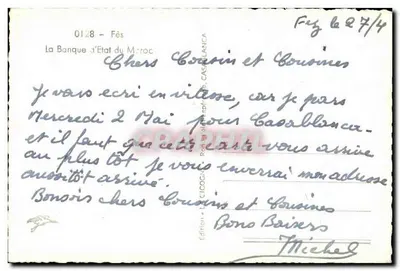 0128 - Fès
La Banque d'Etat du Maroc
Fez le 27/4
Chers Cousin et Cousines
Je vous ecri en vitesse, car je pars
Mercredi 2 Mai pour Casablanca
et il faut que cette carte vous arrive
au plus tôt je vous enverrai mon adresse
aussitôt arrivé.
Bonsoir chers Cousins et Cousines
Bons Baisers
Michel
CASABLANCA